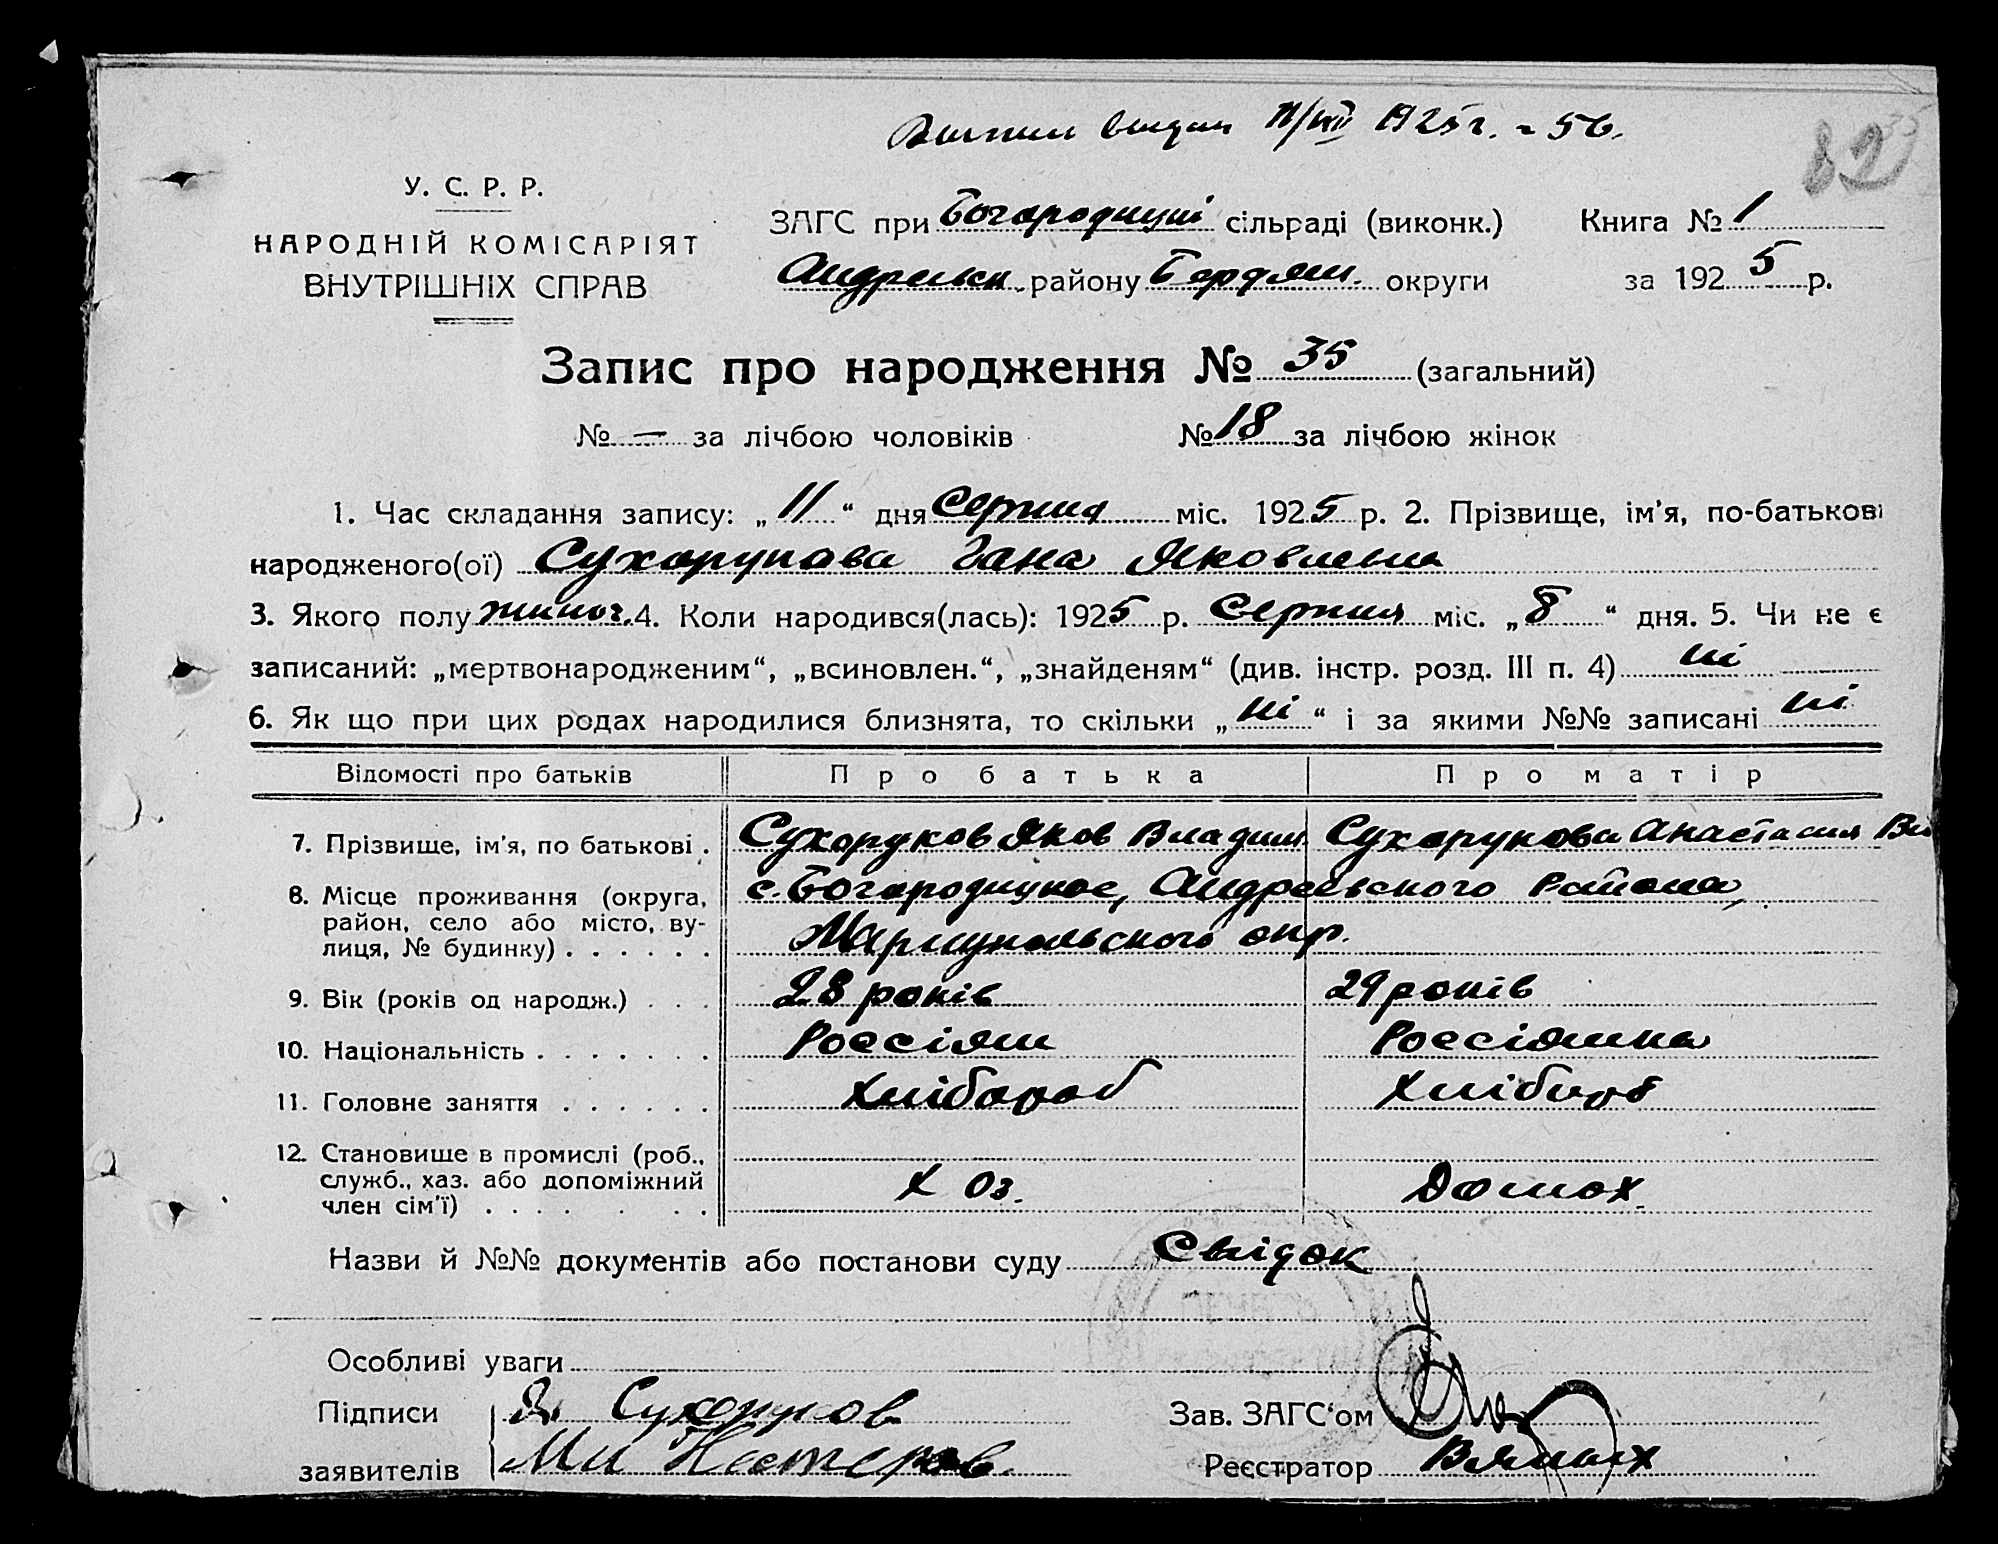 Выпись выдан 11/VIII 1925 г. № 56.
82 35
У. С. Р. Р.
НАРОДНІЙ КОМІСАРІЯТ
ВНУТРІШНІХ СПРАВ
ЗАГС при Богородицкі сільраді (виконк.) Книга № 1
Андреївск. району Бердян. округи за 1925 р.
Запис про народження № 35 (загальний)
№ — за лічбою чоловіків № 18 за лічбою жінок
1. Час складання запису: „11“ дня Серпня міс. 1925 р. 2. Прізвище, ім'я, по-батькові
народженого(ої) Сухорукова Гана Яковлевна
3. Якого полу жиноч. 4. Коли народився(лась): 1925 р. Серпня міс. „8“ дня. 5. Чи не є
записаний: „мертвонародженим“, „всиновлен.“, „знайденям“ (див. інстр. розд. III п. 4) ні
6. Як що при цих родах народилися близнята, то скільки „ні“ і за якими №№ записані ні
Відомості про батьків Про батька Про матір
7. Прізвище, ім'я, по батькові . Сухоруков Яков Владим. Сухорукова Анастасия Вл
8. Місце проживання (округа, с. Богородицкое, Андреевского Района,
район, село або місто, ву-
лиця, № будинку) . . . . . . Мариупольского окр.
9. Вік (років од народж.) . . . 28 років 29 років
10. Національність . . . . . . . Россіян Россіянка
11. Головне заняття . . . . . . Хлібороб Хлібороб
12. Становище в промислі (роб.,
служб., хаз. або допоміжний Х Оз. Домох.
член сім'ї) . . . . . . .
Назви й №№ документів або постанови суду Свідок
Особливі уваги
Підписи Я. Сухоруков Зав. ЗАГС'ом
заявителів Ми Нестеров. Реєстратор Вяных